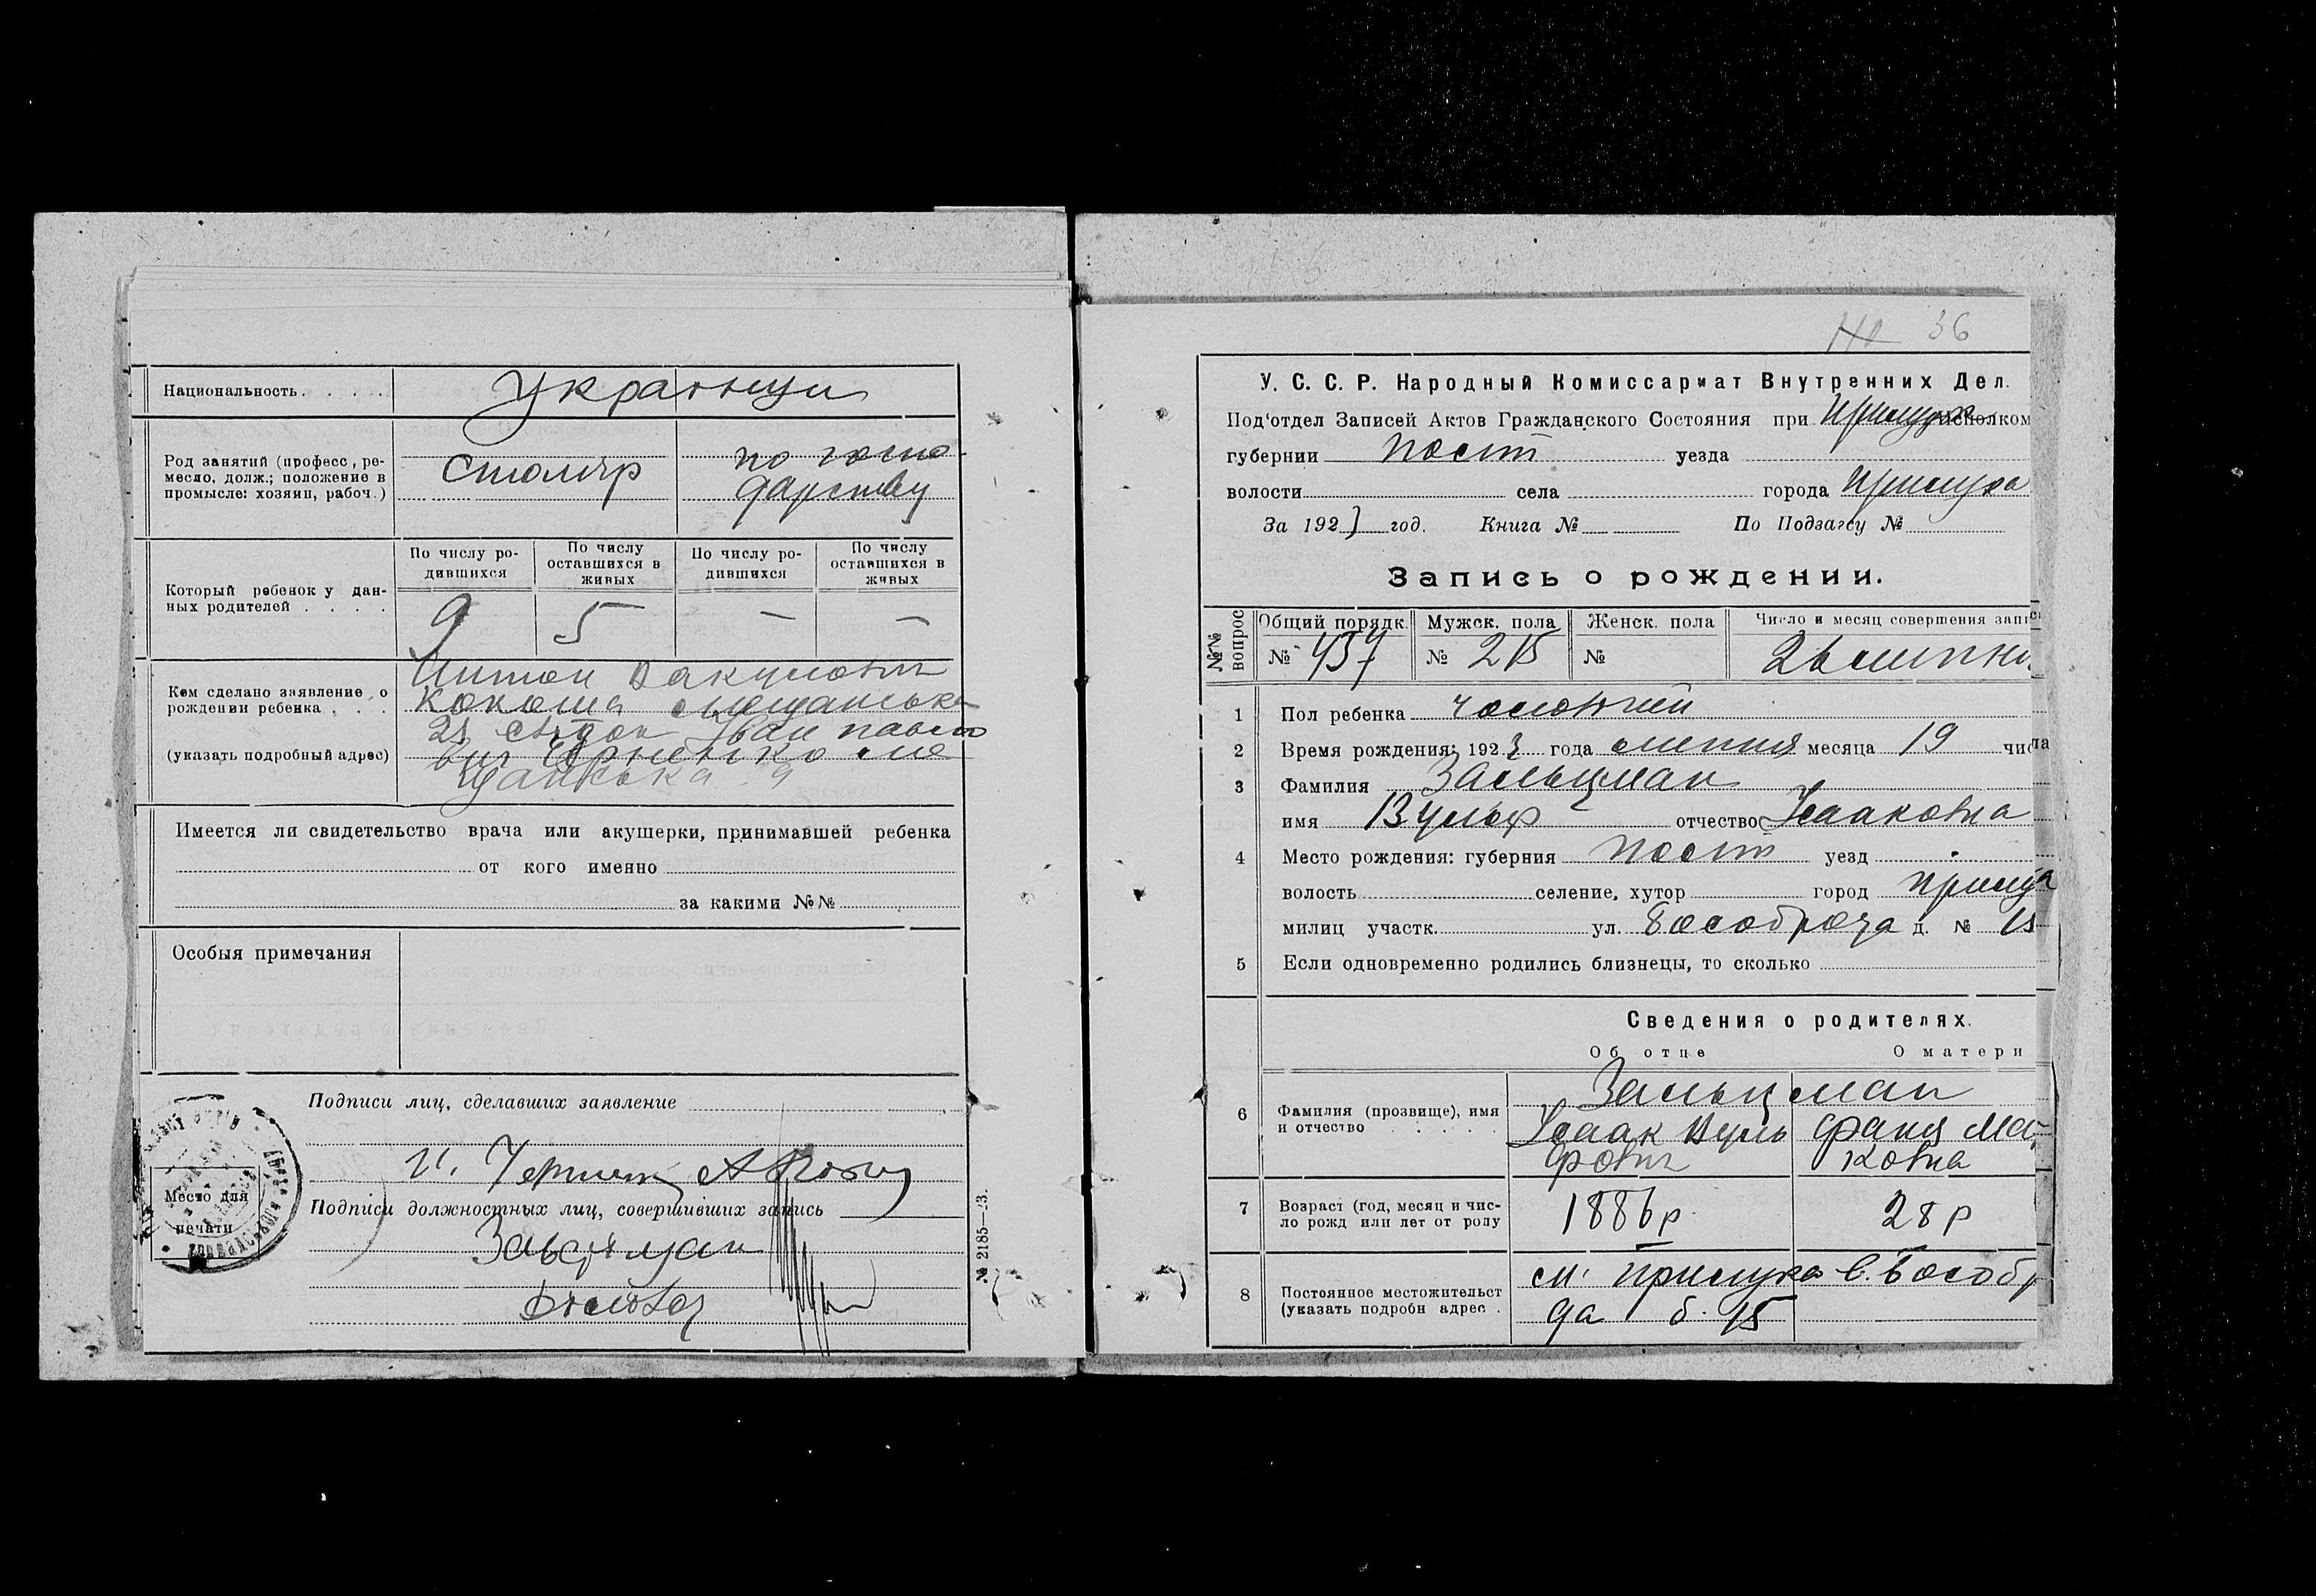 Национальность
Украінци
Род занятий (професс, ре-
месло, долж.; положение в
промысле: хозяин, рабоч.)
Столяр
по госпо-
дарству
Который ребенок у дан-
ных родителей
По числу ро-
дившихся
По числу
оставшихся в
живых
По числу ро-
дившихся
По числу
оставшихся в
живых
9 5 — —
Кем сделано заявление о
рождении ребенка
(указать подробный адрес)
Антон Вакулович
Кокоша мещанська
21 свідок Іван Павло
вич Черненко ме
щанська 9
Имеется ли свидетельство врача или акушерки, принимавшей ребенка
от кого именно
за какими №№
Особыя примечания
Подписи лиц, сделавших заявление
И.
Подписи должностных лиц, совершивших запись
Место для
печати
№ 2185—23.
36
У. С. С. Р. Народный Комиссариат Внутренних Дел.
Под'отдел Записей Актов Гражданского Состояния при исполком
губернии Полт уезда
волости села города Прилука
За 1923 год. Книга № По Подзагсу №
Запись о рождении.
№№
вопрос
Общий порядк. Мужск. пола Женск. пола Число и месяц совершения запис
№ 457 № 215 № 26 липня
1 Пол ребенка чоловічий
2 Время рождения: 1923 года липня месяца 19 числа
3 Фамилия Зальцман
имя Вульф отчество Ісааковна
4 Место рождения: губерния Полт уезд
волость селение, хутор город Прилука
милиц участк. ул. д. № 15
5 Если одновременно родились близнецы, то сколько
Сведения о родителях.
Об отце О матери
6 Фамилия (прозвище), имя
и отчество
Зальцман
Ісаак Вуль Фаня Мар
фович ковна
7 Возраст (год, месяц и чис-
ло рожд или лет от роду
1886 р. 28 р
8 Постоянное местожительст
(указать подробн адрес .
м. Прилука
да б. 15